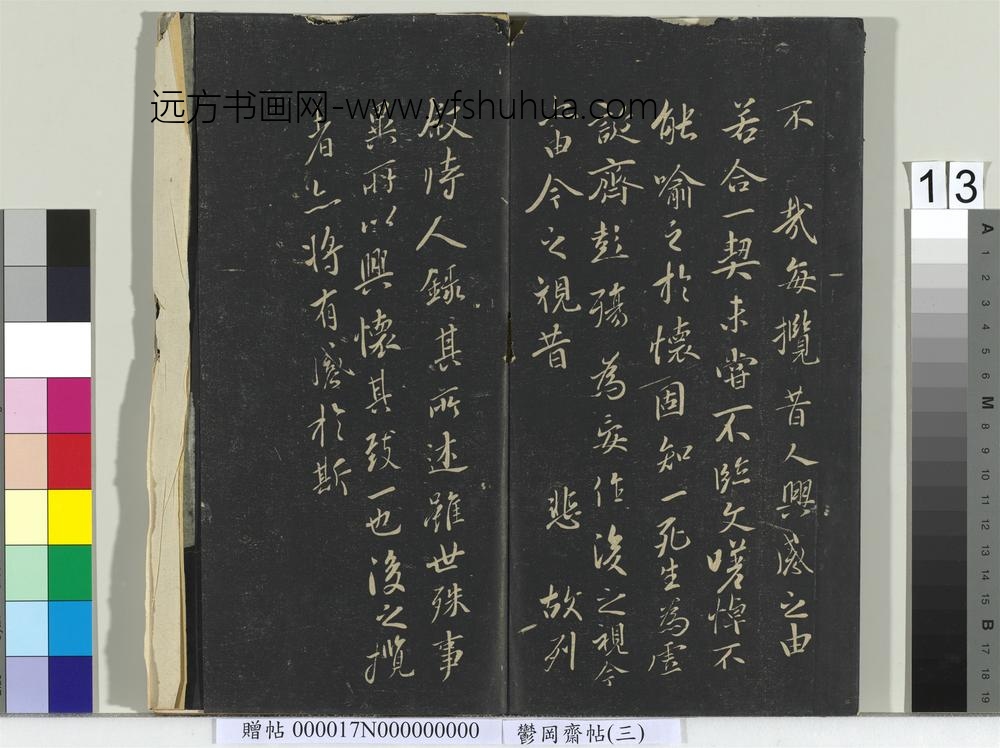 远方书画网-www.yfshuhua.com
不 哉每攬昔人興感之由
若合一契未嘗不臨文嗟悼不
能喻之於懷固知一死生為虛
誕齊彭殤為妄作後之視今
亦由今之視昔 悲 故列
敘時人錄其所述雖世殊事
異所以興懷其致一也後之攬
者亦將有感於斯
13
A 1 2 3 4 5 6 M 8 9 10 11 12 13 14 15 B 17 18 19
贈帖 000017N000000000
鬱岡齋帖(三)